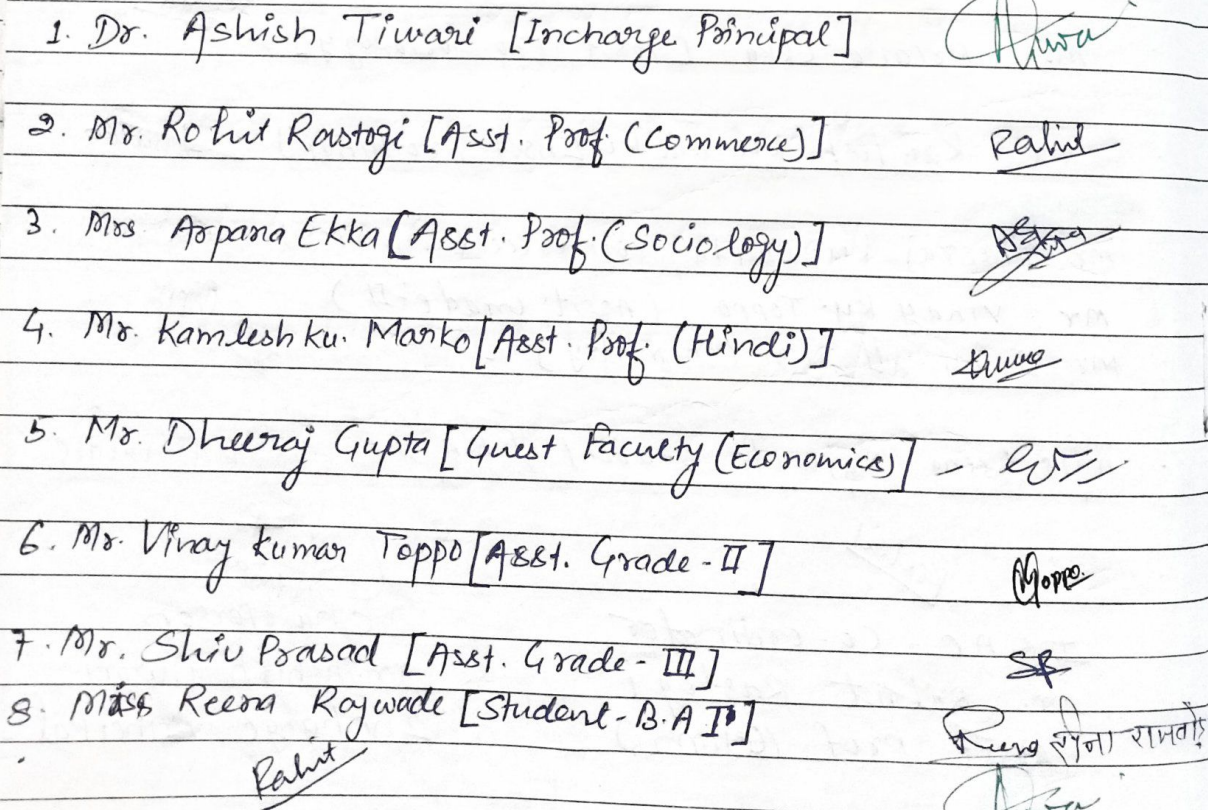 1. Dr. Ashish Tiwari [Incharge Principal]
2. Mr. Rohit Rastogi [Asst. Prof. (Commerce)] Rahit
3. Mrs Arpana Ekka [Asst. Prof. (Sociology)]
4. Mr. Kamlesh ku. Marko [Asst. Prof. (Hindi)]
5. Mr. Dheeraj Gupta [Guest Faculty (Economics)] -
6. Mr. Vinay Kumar Toppo [Asst. Grade - II] Toppo.
7. Mr. Shiv Prasad [Asst. Grade - III] SP
8. Miss Reena Rajwade [Student - B.A I] रीना
Rahit